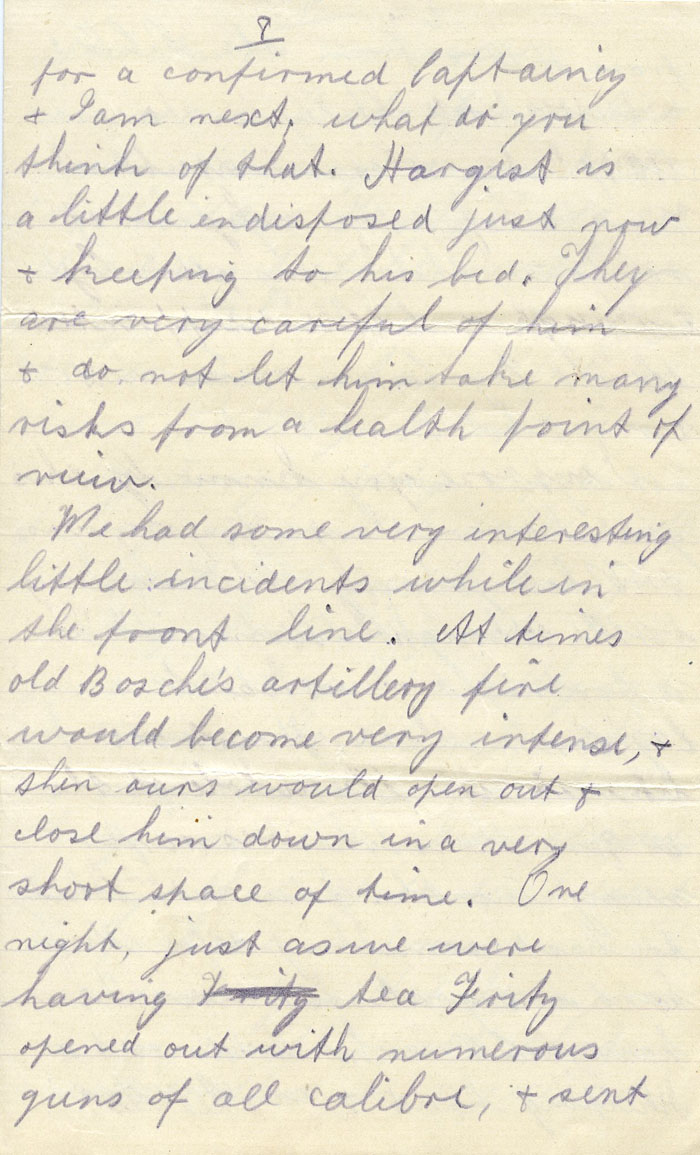 7
for a confirmed Captaincy
& I am next, what do you
think of that. Hargist is
a little indisposed just now
& keeping to his bed. They
are very careful of him
& do not let him take many
risks from a health point of
view.
We had some very interesting
little incidents while in
the front line. At times
old Bosche's artillery fire
would become very intense, &
then ours would open out &
close him down in a very
short space of time. One
night, just as we were
having Fritz tea Fritz
opened out with numerous
guns of all calibre, & sent